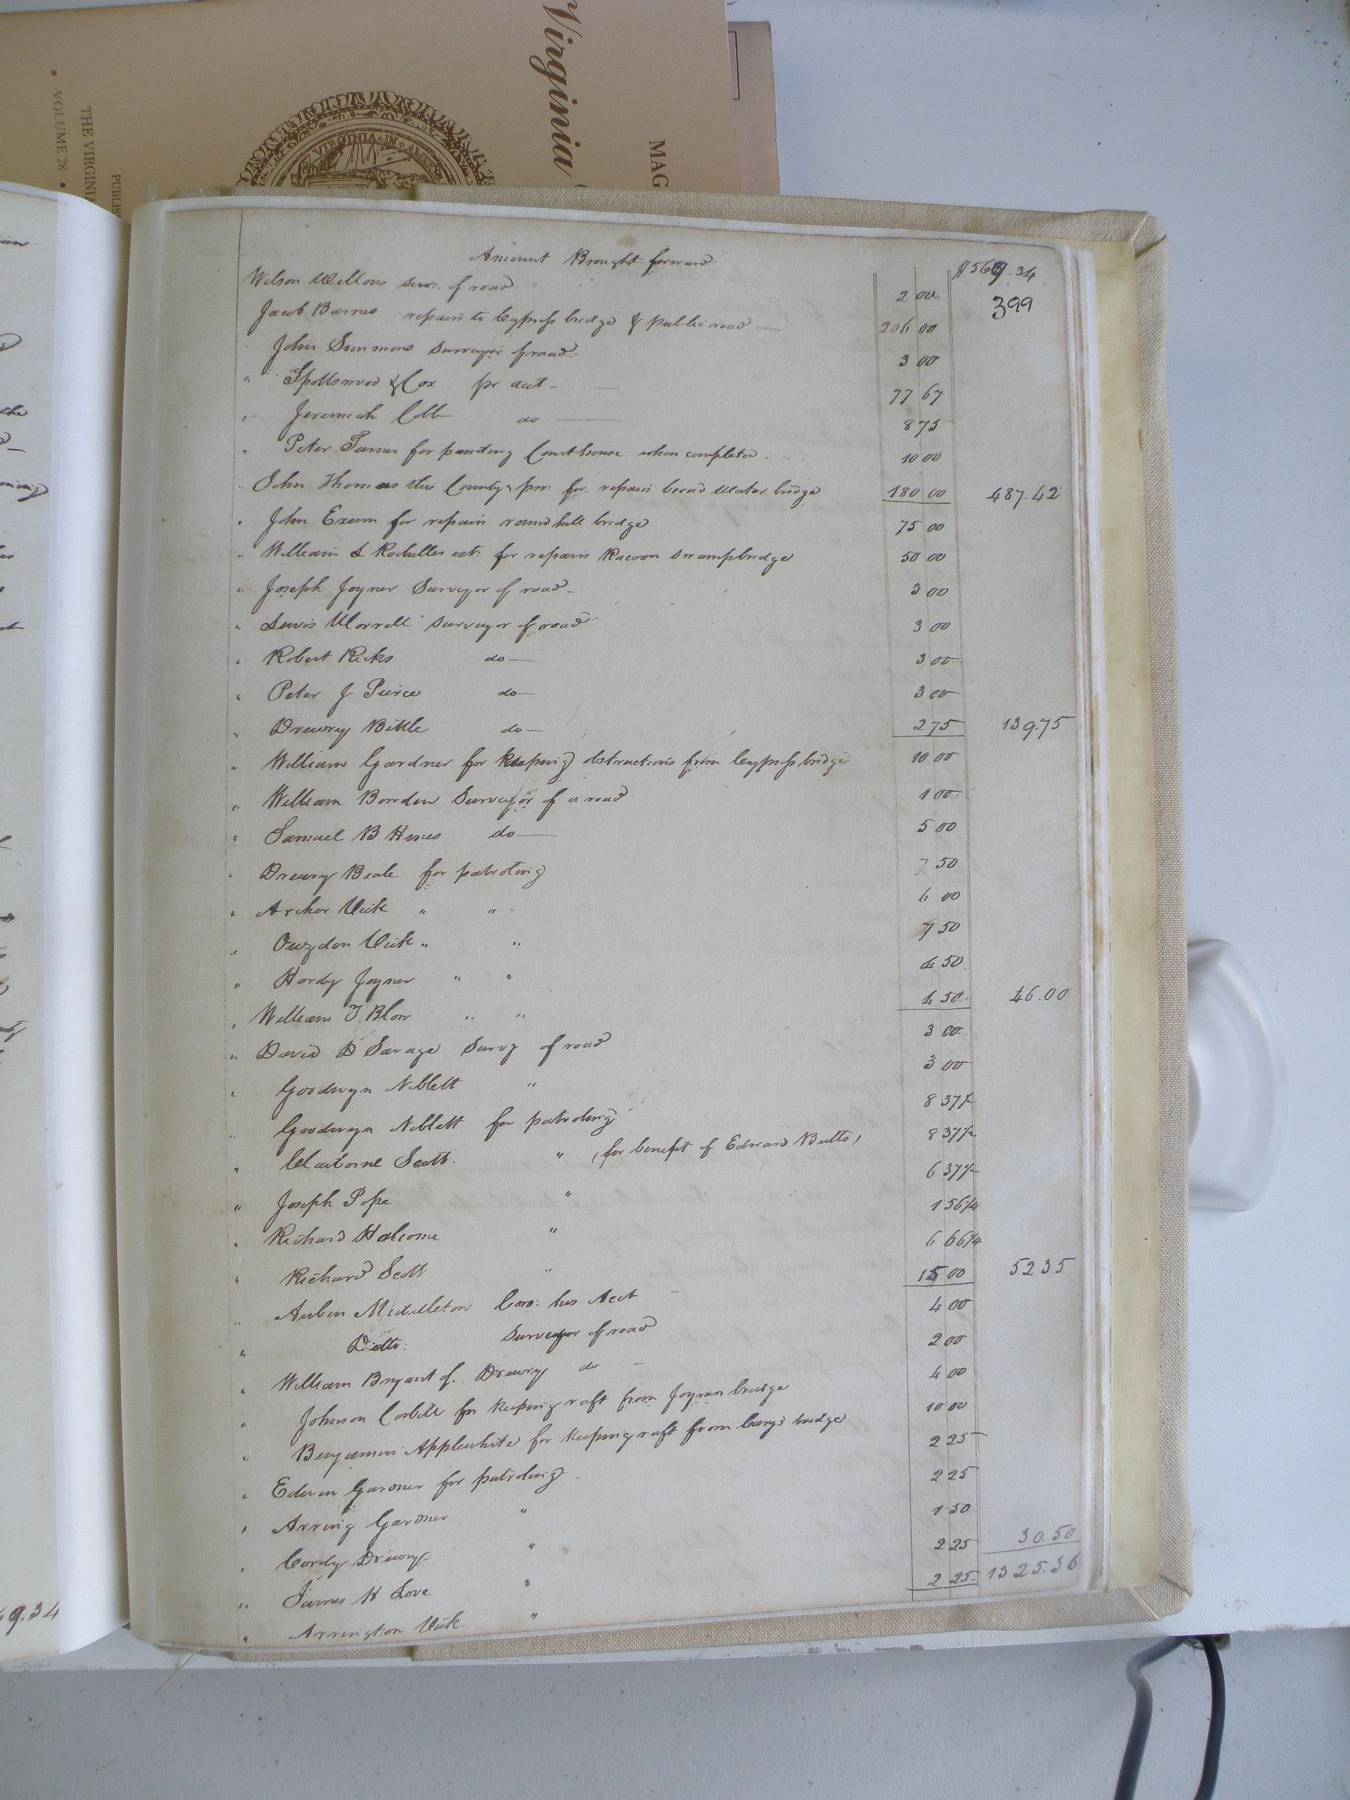 Virginia
MAG
VIRGINIA
THE VIRGINIA
VOLUME 28
PUBLIS
Amount Brought forward $569.34
399
Wilson Wellons Surv: of road 2 00
Jacob Barnes repairs to Cypress bridge & public road 206 00
John Simmons Surveyor of road 3 00
" Spottswood & Cox pr acct 77 67
" Jeremiah Cobb do 8 75
" Peter Turner for painting Courthouse when completed 10 00
John Thomas this County's pro: for repairs broad Water bridge 180 00 487.42
" John Exum for repairs round hill bridge 75 00
" William L Rochelles est: for repairs Racoon Swamp bridge 50 00
" Joseph Joyner Surveyor of road 3 00
" Lewis Worrell Surveyor of road 3 00
" Robert Ricks do 3 00
" Peter J Peirce do 3 00
" Drewry Bittle do 2 75 139.75
" William Gardner for keeping obstructions from Cypress bridge 10 00
" William Bowden Surveyor of a road 1 00
" Samuel B Hines do 5 00
" Drewry Beale for patroling 7 50
" Archer Vick " " 6 00
" Vick " " 7 50
" Hardy Joyner " " 4 50
" William T Blow " " 4 50 46.00
" David D Savage Survy of road 3 00
" Goodwyn Niblett " 3 00
Goodwyn Niblett for patroling 8 37 1/2
" Claiborne Scott " (for benefit of Edward Butts) 8 37 1/2
" Joseph Pope " 6 37 1/2
" Richard Holcome " 1 56 1/4
" Richard Scott " 6 66 1/4
" Middleton his Acct 15 00 52 35
" Ditto: Surveyor of road 4 00
" William Bryant of Drewry do 2 00
" Johnson Corbitt for keeping raft from Joyners bridge 4 00
" Benjamin Applewhite for keeping raft from Carys bridge 10 00
" Edwin Gardner for patroling 2 25
" Gardner " 2 25
" Cordy Drewry " 1 50
" James H Love " 2 25 30.50
" Arrington Vick " 2 25 1325.36
9.34